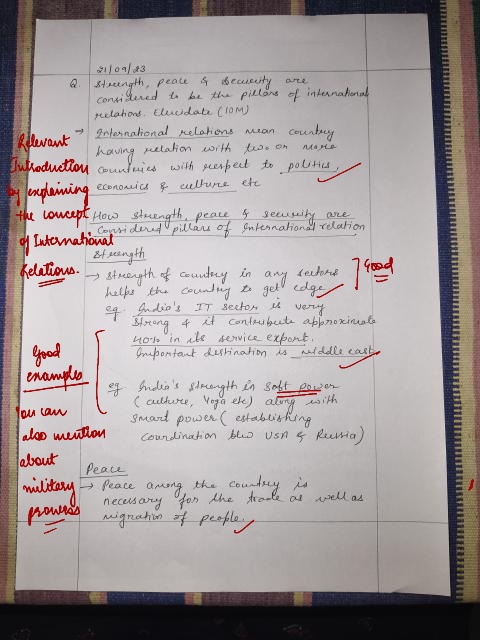 21/09/23
Q. Strength, peace & security are
considered to be the pillars of international
relations. Elucidate (10M)
→ International relations mean country
having relation with two or more
countries with respect to politics,
economics & culture etc
Relevant
Introduction
by explaining
the concept
of International
Relations.
How strength, peace & security are
considered pillars of International relation
Strength
→ Strength of country in any sectors
helps the country to get edge.
Good
eg. India's IT sector is very
strong & it contribute approximate
40% in its service export.
Important destination is middle east
eg India's strength in soft power
(culture, Yoga etc) along with
smart power (establishing
coordination b/w USA & Russia)
Good
examples
You can
also mention
about
military
prowess
Peace
→ Peace among the country is
necessary for the trade as well as
migration of people.